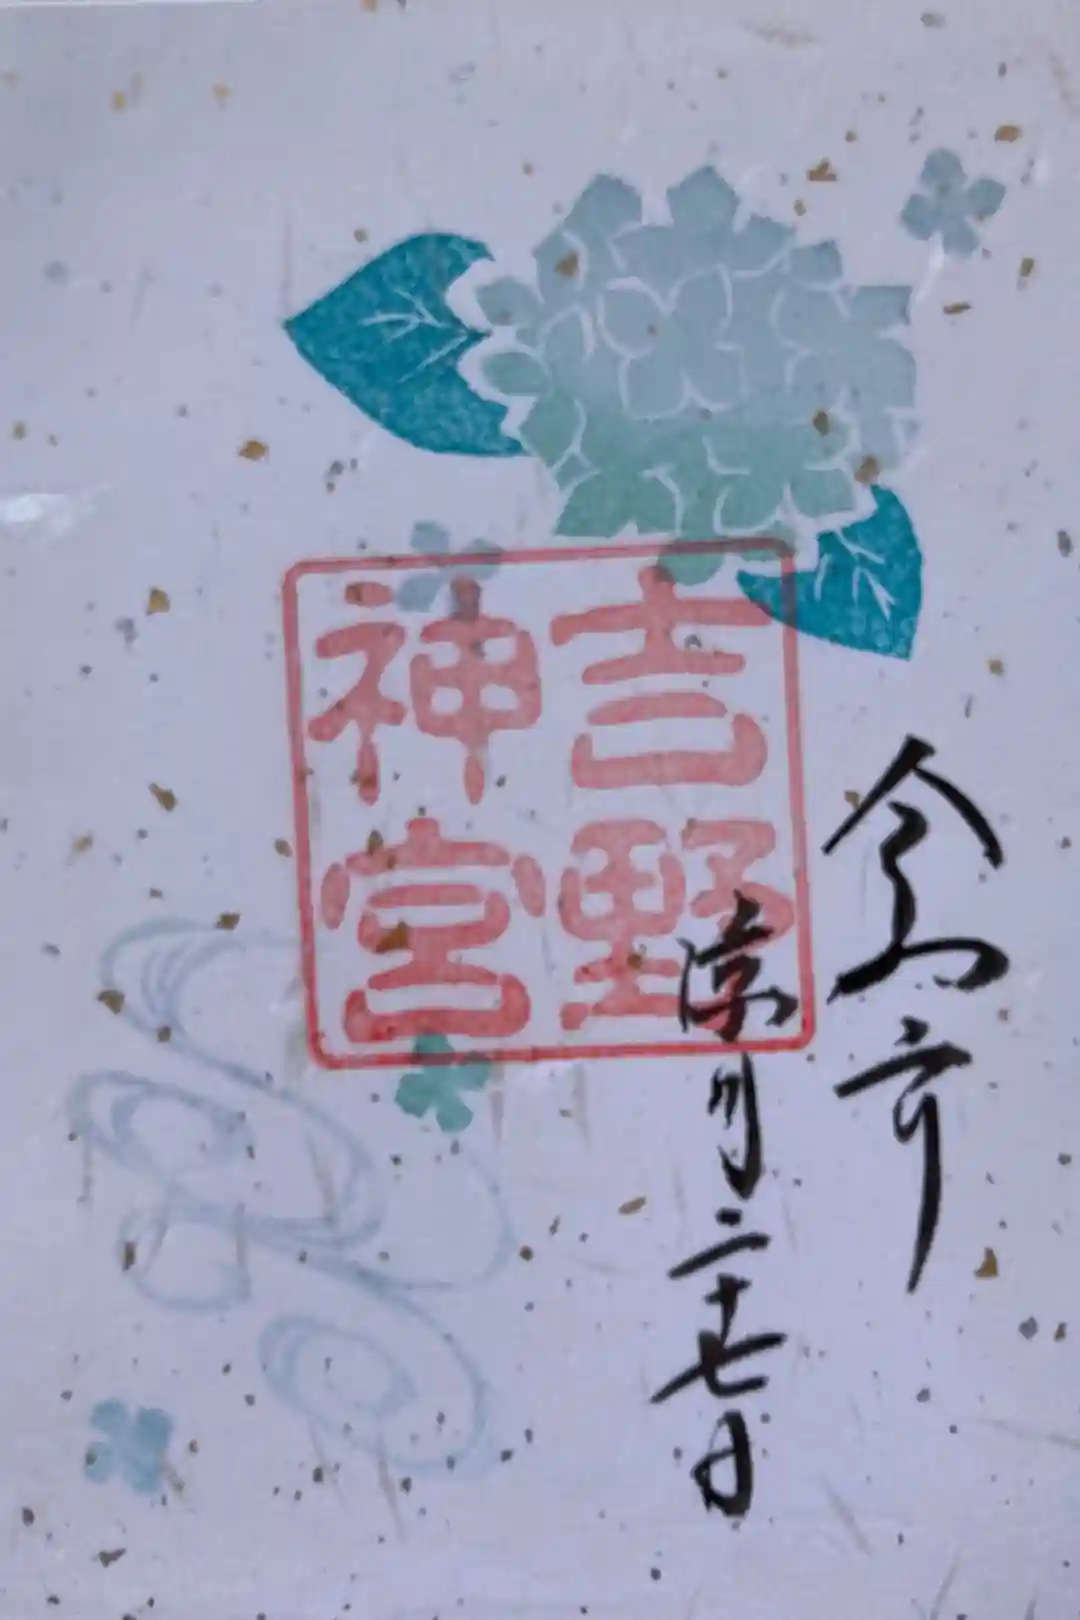 吉野
神宮
令和六年
涼月二十七日